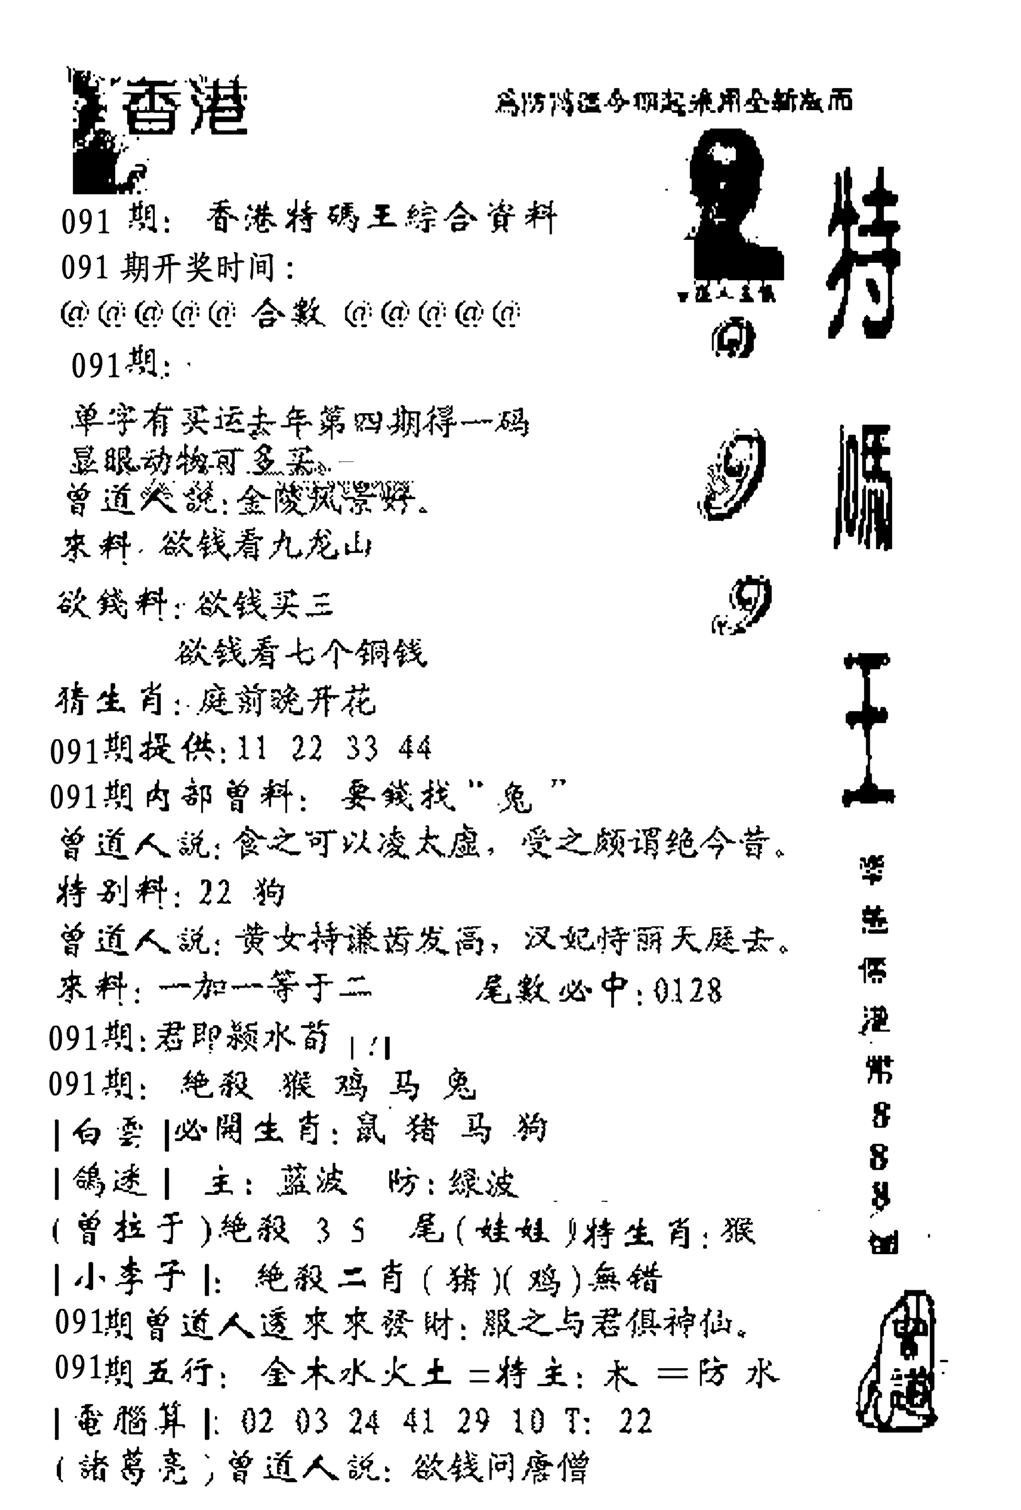 香港
為防偽從今期起采用全新版面
091 期: 香港特碼王綜合資料
091 期开奖时间:
@@@@@ 合數 @@@@@
091期:
单字有买运去年第四期得一码
显眼动物可多买。
曾道人說:金陵风景好。
來料:欲钱看九龙山
欲錢料:欲钱买三
欲钱看七个铜钱
猜生肖:庭前晚开花
091期提供:11 22 33 44
091期内部曾料: 要錢找"兔"
曾道人説:食之可以凌太虚,受之颇谓绝今昔。
特别料:22 狗
曾道人説:黄女持谦齿发高,汉妃恃丽天庭去。
來料:一加一等于二 尾數必中:0128
091期:君即颍水荀
091期: 絶殺 猴 鸡 马 兔
|白雲|必開生肖:鼠 猪 马 狗
|鴿迷| 主:蓝波 防:绿波
(曾拉于)絶殺 3 5 尾(娃娃)特生肖:猴
|小李子|: 絶殺二肖(猪)(鸡)無错
091期曾道人透來來發財:服之与君俱神仙。
091期五行: 金木水火土=特主:木 =防 水
|電腦算|:02 03 24 41 29 10 T: 22
(諸葛亮)曾道人説:欲钱问唐僧
特
碼
王
9
9
港
幣
8
8
8
曾道